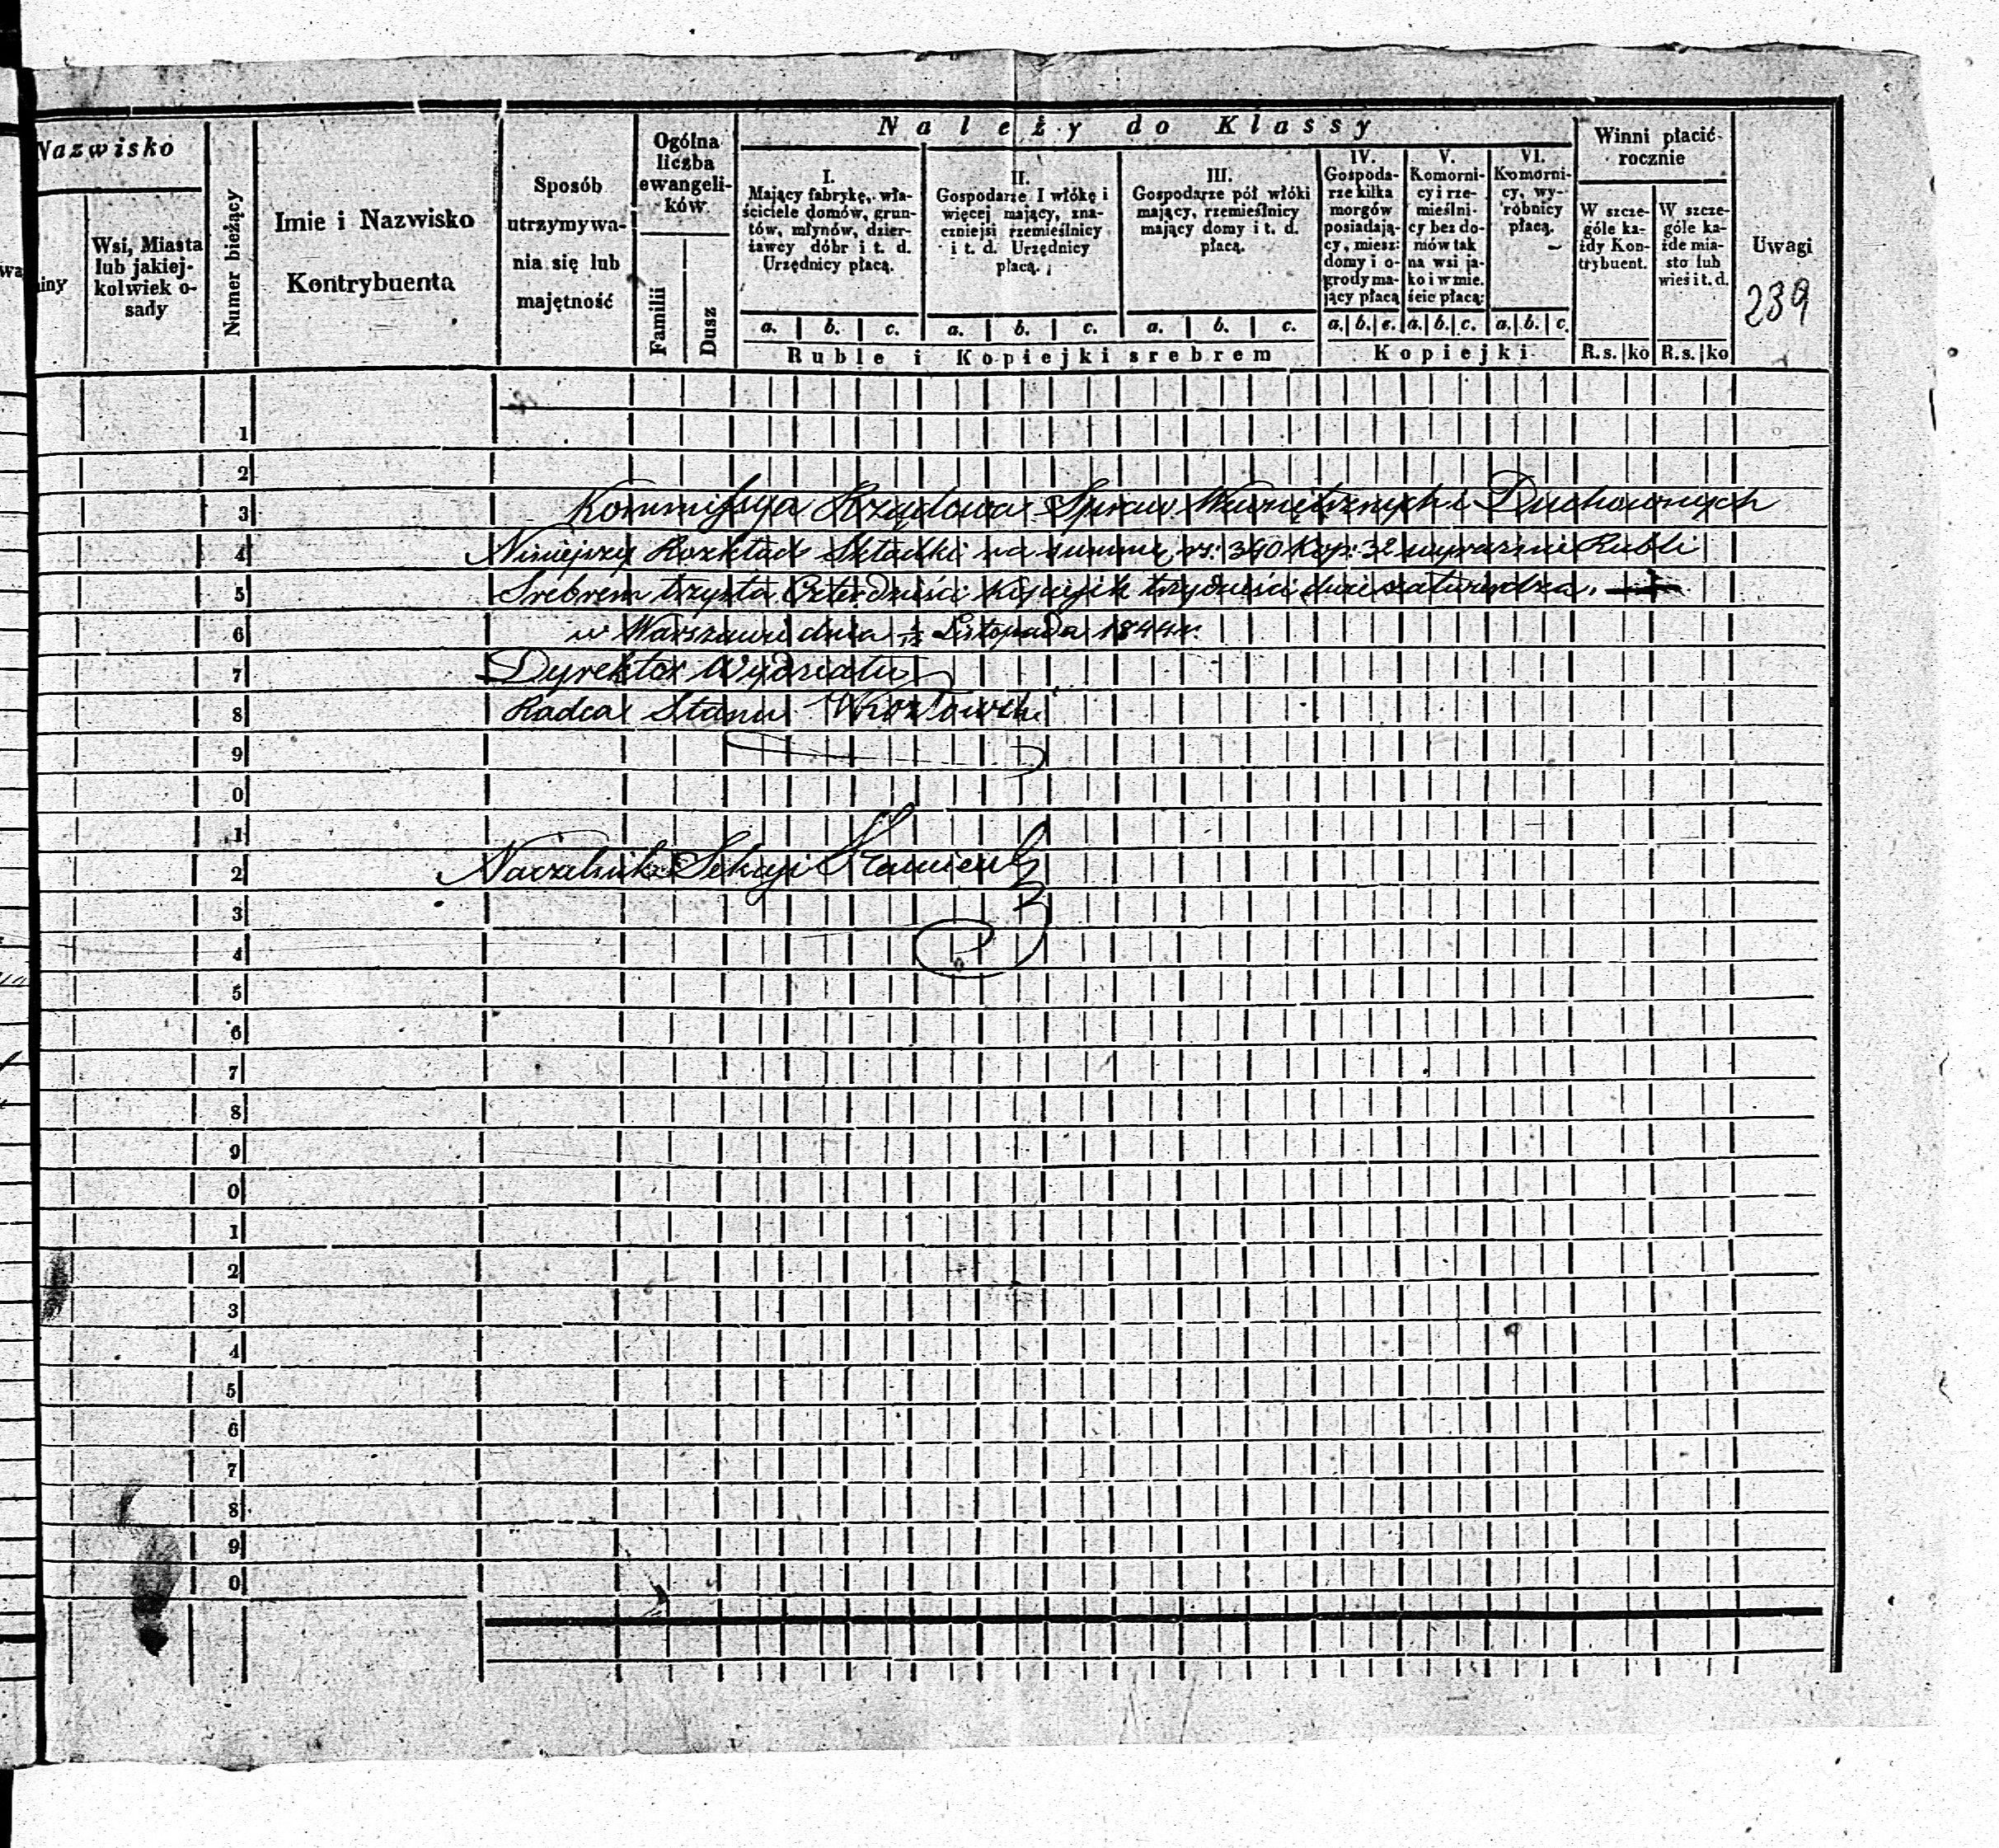 Nazwisko
Wsi, Miasta
lub jakiej-
kolwiek o-
sady
Numer bieżący
Imie i Nazwisko
Kontrybuenta
Sposób
utrzymywa-
nia się lub
majętność
Ogólna
liczba
ewangeli-
ków
Familii
Dusz
Należy do Klassy
I.
Mający fabrykę, wła-
ściciele domów, grun-
tów, młynów, dzier-
żawcy dóbr i t. d.
Urzędnicy płacą.
II.
Gospodarze I włókę i
więcej mający, zna-
czniejsi rzemieślnicy
i t. d. Urzędnicy
płacą.
III.
Gospodarze pół włóki
mający, rzemieślnicy
mający domy i t. d.
płacą.
IV.
Gospoda-
rze kilka
morgów
posiadają-
cy, miesz:
domy i o-
grody ma-
jący płacą
V.
Komorni-
cy i rze-
mieślni-
cy bez do-
mów tak
na wsi ja-
ko i w mie.
ście płacą:
VI.
Komorni-
cy, wy-
robnicy
płacą.
a. b. c. a. b. c. a. b. c. a. b. c. a. b. c. a. b. c.
Ruble i Kopiejki srebrem
Kopiejki
Winni płacić
rocznie
W szcze-
góle ka-
żdy Kon-
trybuent.
W szcze-
góle ka-
żde mia-
sto lub
wieś i t. d.
R.s. ko R.s. ko
Uwagi
239
1
2
3 Kommissya Rządowa Spraw Wewnętrznych i Duchownych
4 Niniejszy Rozkład Składki na summę rs: 340 kop: 32 wyraźnie Rubli
5 Srebrem trzysta Czterdzieści kopiejek trzydzieści dwie zatwierdza.
6 w Warszawie dnia Listopada 1844 r.
7 Dyrektor Wydziału
8 Radca Stanu
9
0
1
2 Naczelnik Sekcyi
3
4
5
6
7
8
9
0
1
2
3
4
5
6
7
8
9
0